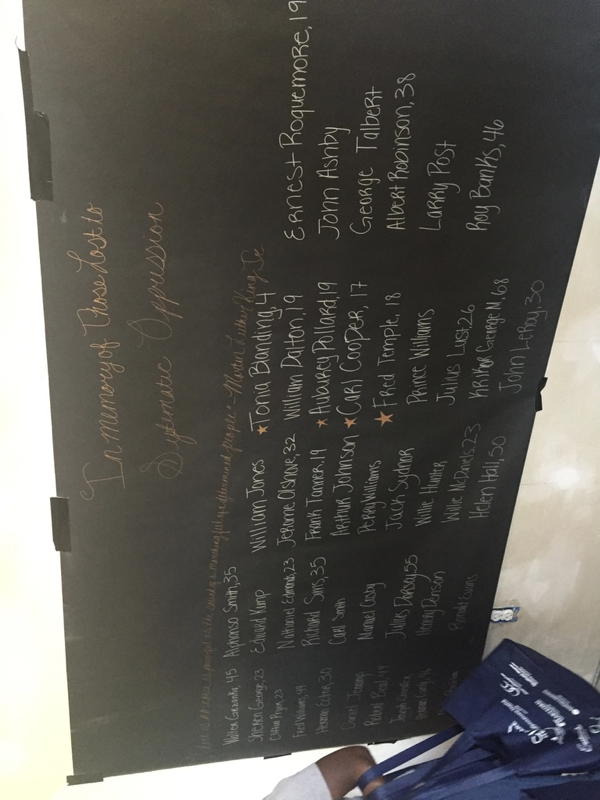 In memory of Those Lost to
Systematic Oppression
determined people" - Martin Luther King Jr.
Walter Grzanka, 45
Stephen George, 23
Clifton Pryor, 23
Fred Williams, 49
Herman Ector, 30
Daniel Jennings
Robert Beal, 49
Joseph Chandler
Alphonso Smith, 35
Edward Kemp
Nathaniel Edmonds, 23
Richard Sims, 35
Carl Smith
Manuel Cosby
Julius Dorsey, 55
Henry Denson
Ronald Evans
William Jones
Jerome Olshove, 32
Frank Tanner, 19
Arthur Johnson
Perry Williams
Jack Sydnor
Willie Hunter
Willie McDaniels, 23
Helen Hall, 50
Tonia Blanding, 4
William Dalton, 19
Auburey Pollard, 19
Carl Cooper, 17
Fred Temple, 18
Prince Williams
Julius Lust, 26
Krikor George M, 68
John LeRoy, 30
Ernest Roquemore, 19
John Ashby
George Talbert
Albert Robinson, 38
Larry Post
Roy Banks, 46